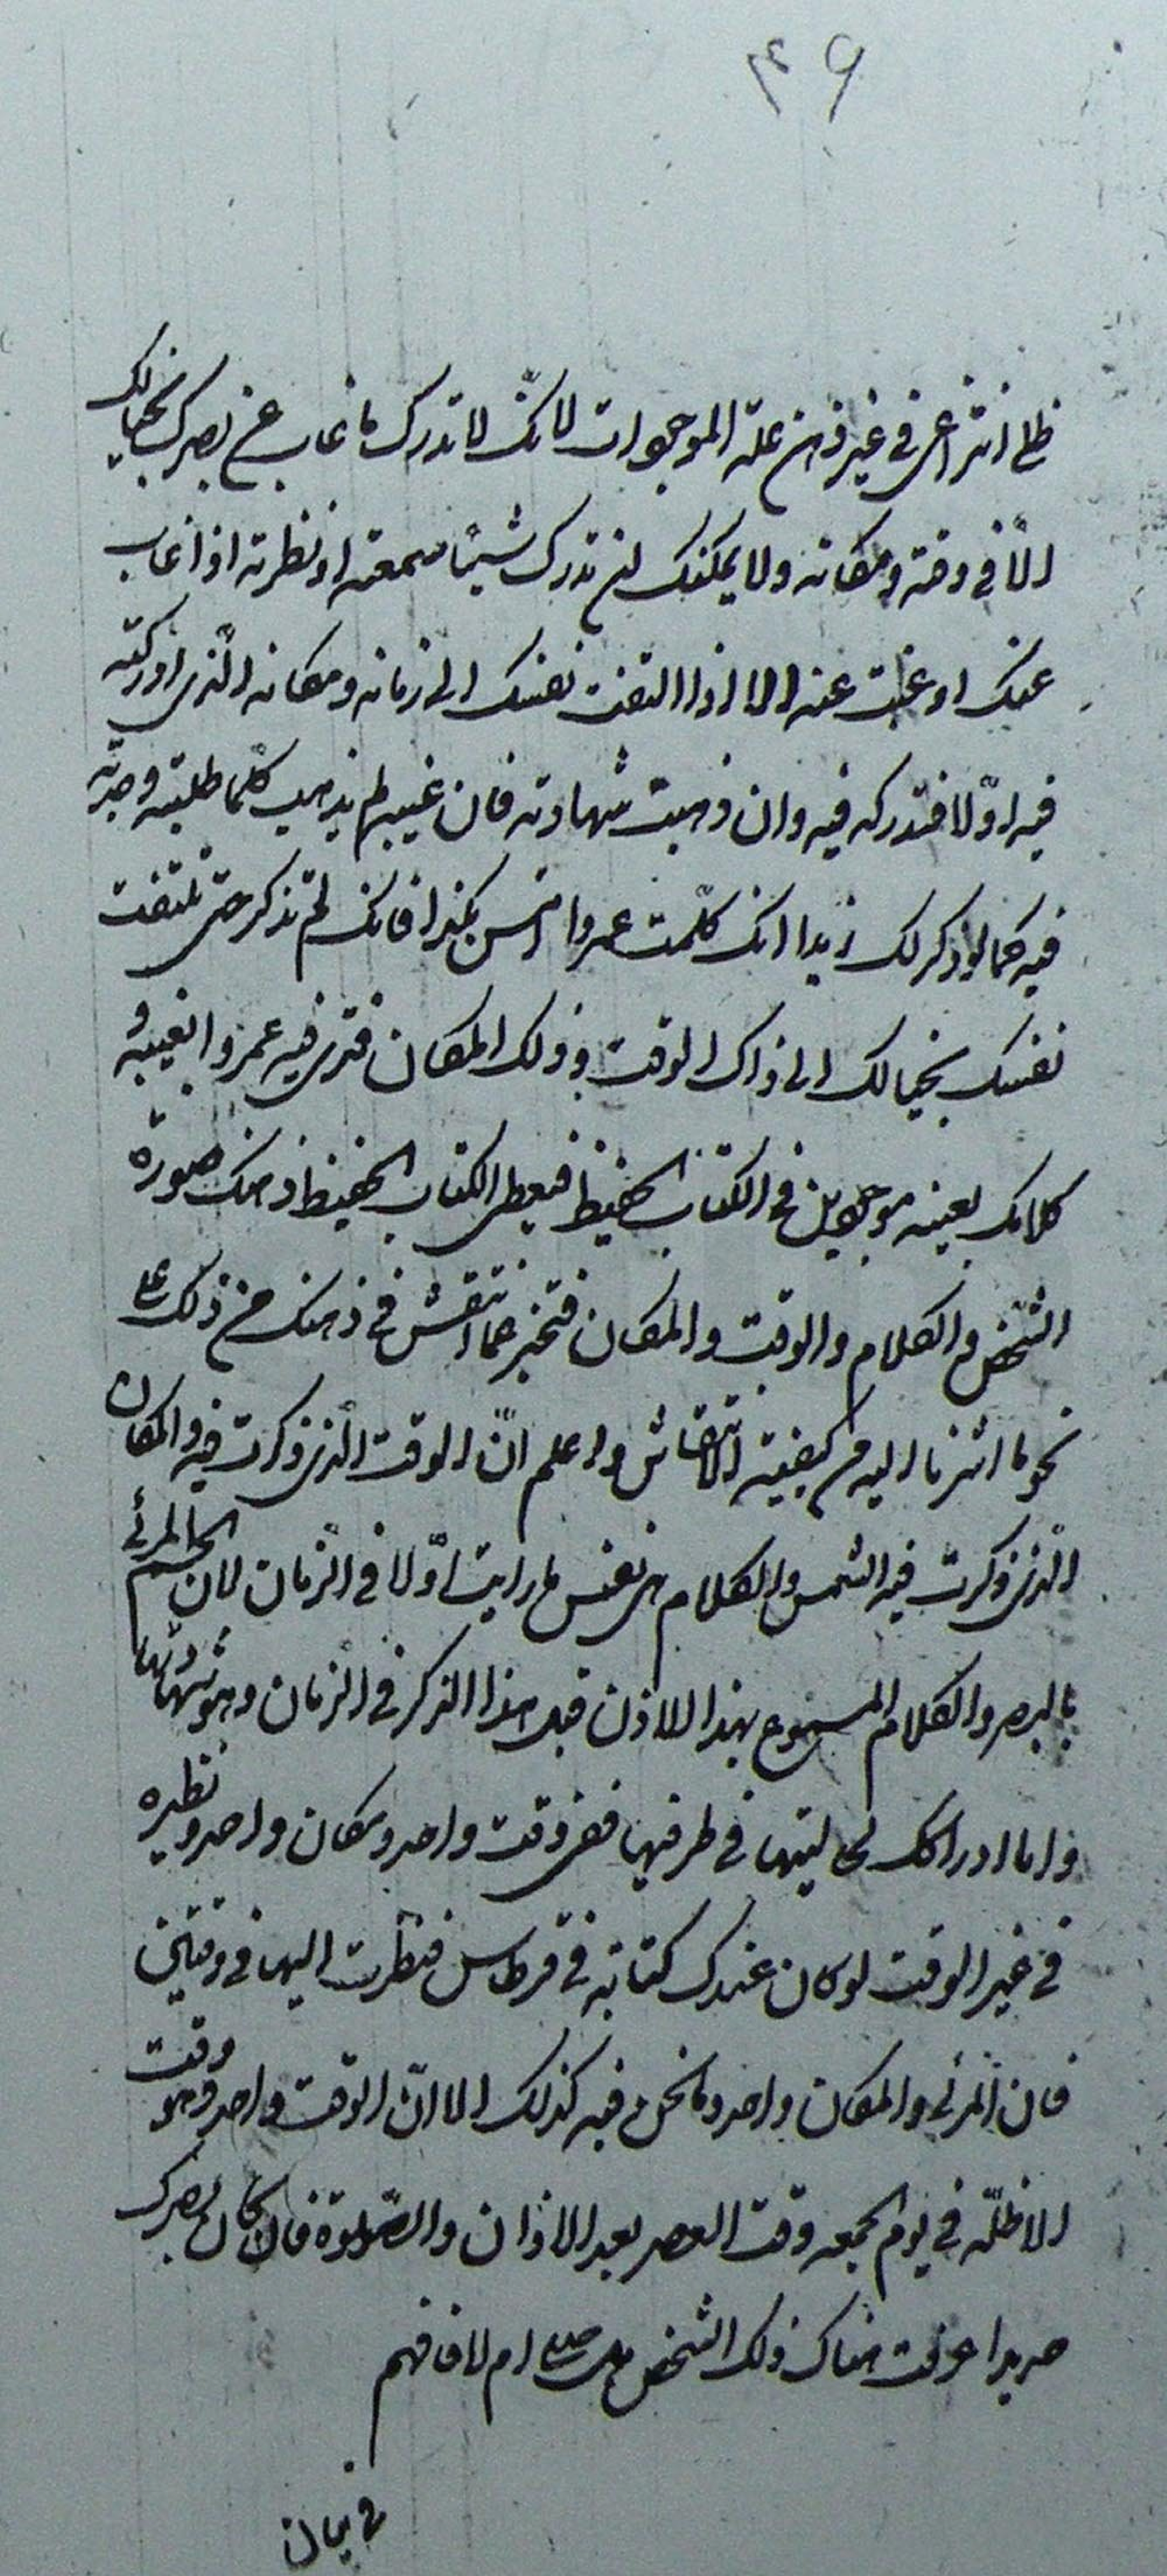 ۴۹
ظلي انتزاعي في غير ذهن علة الموجودات لانّك لا تدرك ما غاب عن بصرك بخيالك
الّا في وقته ومكانه ولا يمكنك ان تدرك شيئًا سمعته او نظرته اذا غاب
عنك او غبت عنه الا اذا التفتت نفسك الى زمانه ومكانه الّذي ادركته
فيه اوّلا فتدركه فيه وان ذهبت شهادته فان غيبه لم يذهب كلّما طلبته وجدته
فيه كما لو ذكر لك زيدا انك كلّمت عمروا امس بكذا فانك لم تذكر حتى تلتفت
نفسك بخيالك الى ذاك الوقت وذلك المكان فترى فيه عمروا بغيبه و
كلامك بعينه موجودين في الكتاب الحفيظ فيعطى الكتاب الحفيظ ذهنك صورة
الشخص والكلام والوقت والمكان فتخبر عما انتقش في ذهنك من ذلك على
نحو ما اشرنا اليه من كيفية الانتقاش واعلم انّ الوقت الّذي ذكرت فيه والمكان
الّذي ذكرت فيه الشخص والكلام هي نفس ما رايت اوّلا في الزمان لان الجسم المرئي
بالبصر والكلام المسموع بهذا الاذن قبل هذا الذكر في الزمان وهو شهادتهما
واما ادراكك لحالتيهما في ظرفيهما ففي وقت واحد ومكان واحد ونظيره
في غير الوقت لو كان عندك كتابة في قرطاس فنظرت اليها في وقتين
فان المرئي والمكان واحد وما نحن فيه كذلك الا انّ الوقت واحد وهو وقت
الاظلّة في يوم الجمعه وقت العصر بعد الاذان والصّلوة فان كان بصرك
حديدا عرفت هناك ذلك الشخص هل صلى ام لا فافهم
في بيان